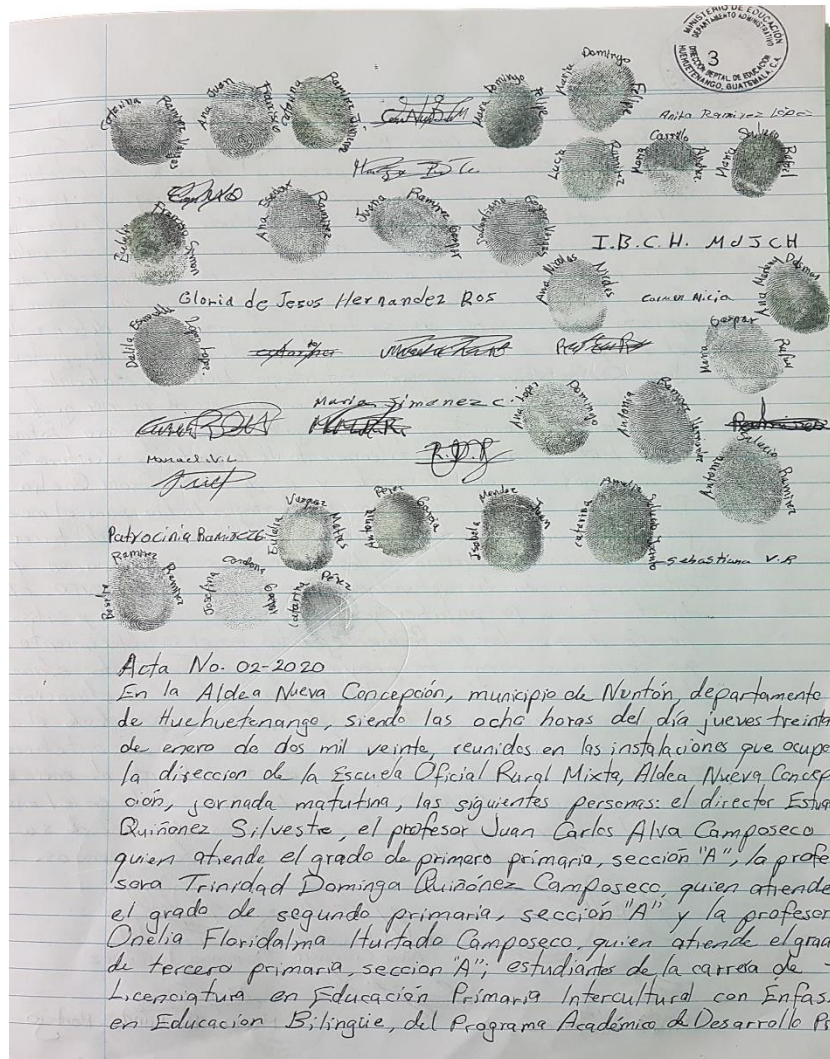 MINISTERIO DE EDUCACIÓN
DEPARTAMENTO ADMINISTRATIVO
3
HUEHUETENANGO, GUATEMALA, C.A.
Catarina Ramirez Vargas
Ana Juan Francisco
Catarina Ramirez
Domingo Felipe
Maria Domingo Felipe
Anita Ramirez López
Lucia Ramirez
Maria Carrillo
Maria
Eulalia Francisco
Ana Ramirez
Juana Ramirez
Sebastiana
I.B.C.H. MdJCH
Gloria de Jesus Hernandez Ros
Ana Nicolas Nicolas
Carmen Alicia
Ana Martinez
Dalila López López.
Maria Gaspar
Maria Jimenez C.
Ana Lopez Domingo
Antonia Ramirez Hernandez
Manuel V.L
R.D.R
Antonia Salucio Ramirez
Patrocinia Ramirez
Eulalia Vazquez Matias
Antonia Perez Garcia
Isabela Mendez Juan
Catarina
Sebastiana V.R
Ramirez Ramirez
Josefina Cardona
Catarina Pérez
Acta No. 02-2020
En la Aldea Nueva Concepción, municipio de Nentón, departamento
de Huehuetenango, siendo las ocho horas del día jueves treinta
de enero de dos mil veinte, reunidos en las instalaciones que ocupe
la direccion de la Escuela Oficial Rural Mixta, Aldea Nueva Concep
ción, jornada matutina, las siguientes personas: el director Estua
Quiñonez Silvestre, el profesor Juan Carlos Alva Camposeco
quien atiende el grado de primero primaria, sección "A", la profe
sora Trinidad Dominga Quiñónez Camposeco, quien atiende
el grado de segundo primaria, sección "A" y la profesor
Onelia Floridalma Hurtado Camposeco, quien atiende el grad
de tercero primaria, seccion "A"; estudiantes de la carrera de -
Licenciatura en Educación Primaria Intercultural con Énfas.
en Educacion Bilingüe, del Programa Académico de Desarrollo Pr